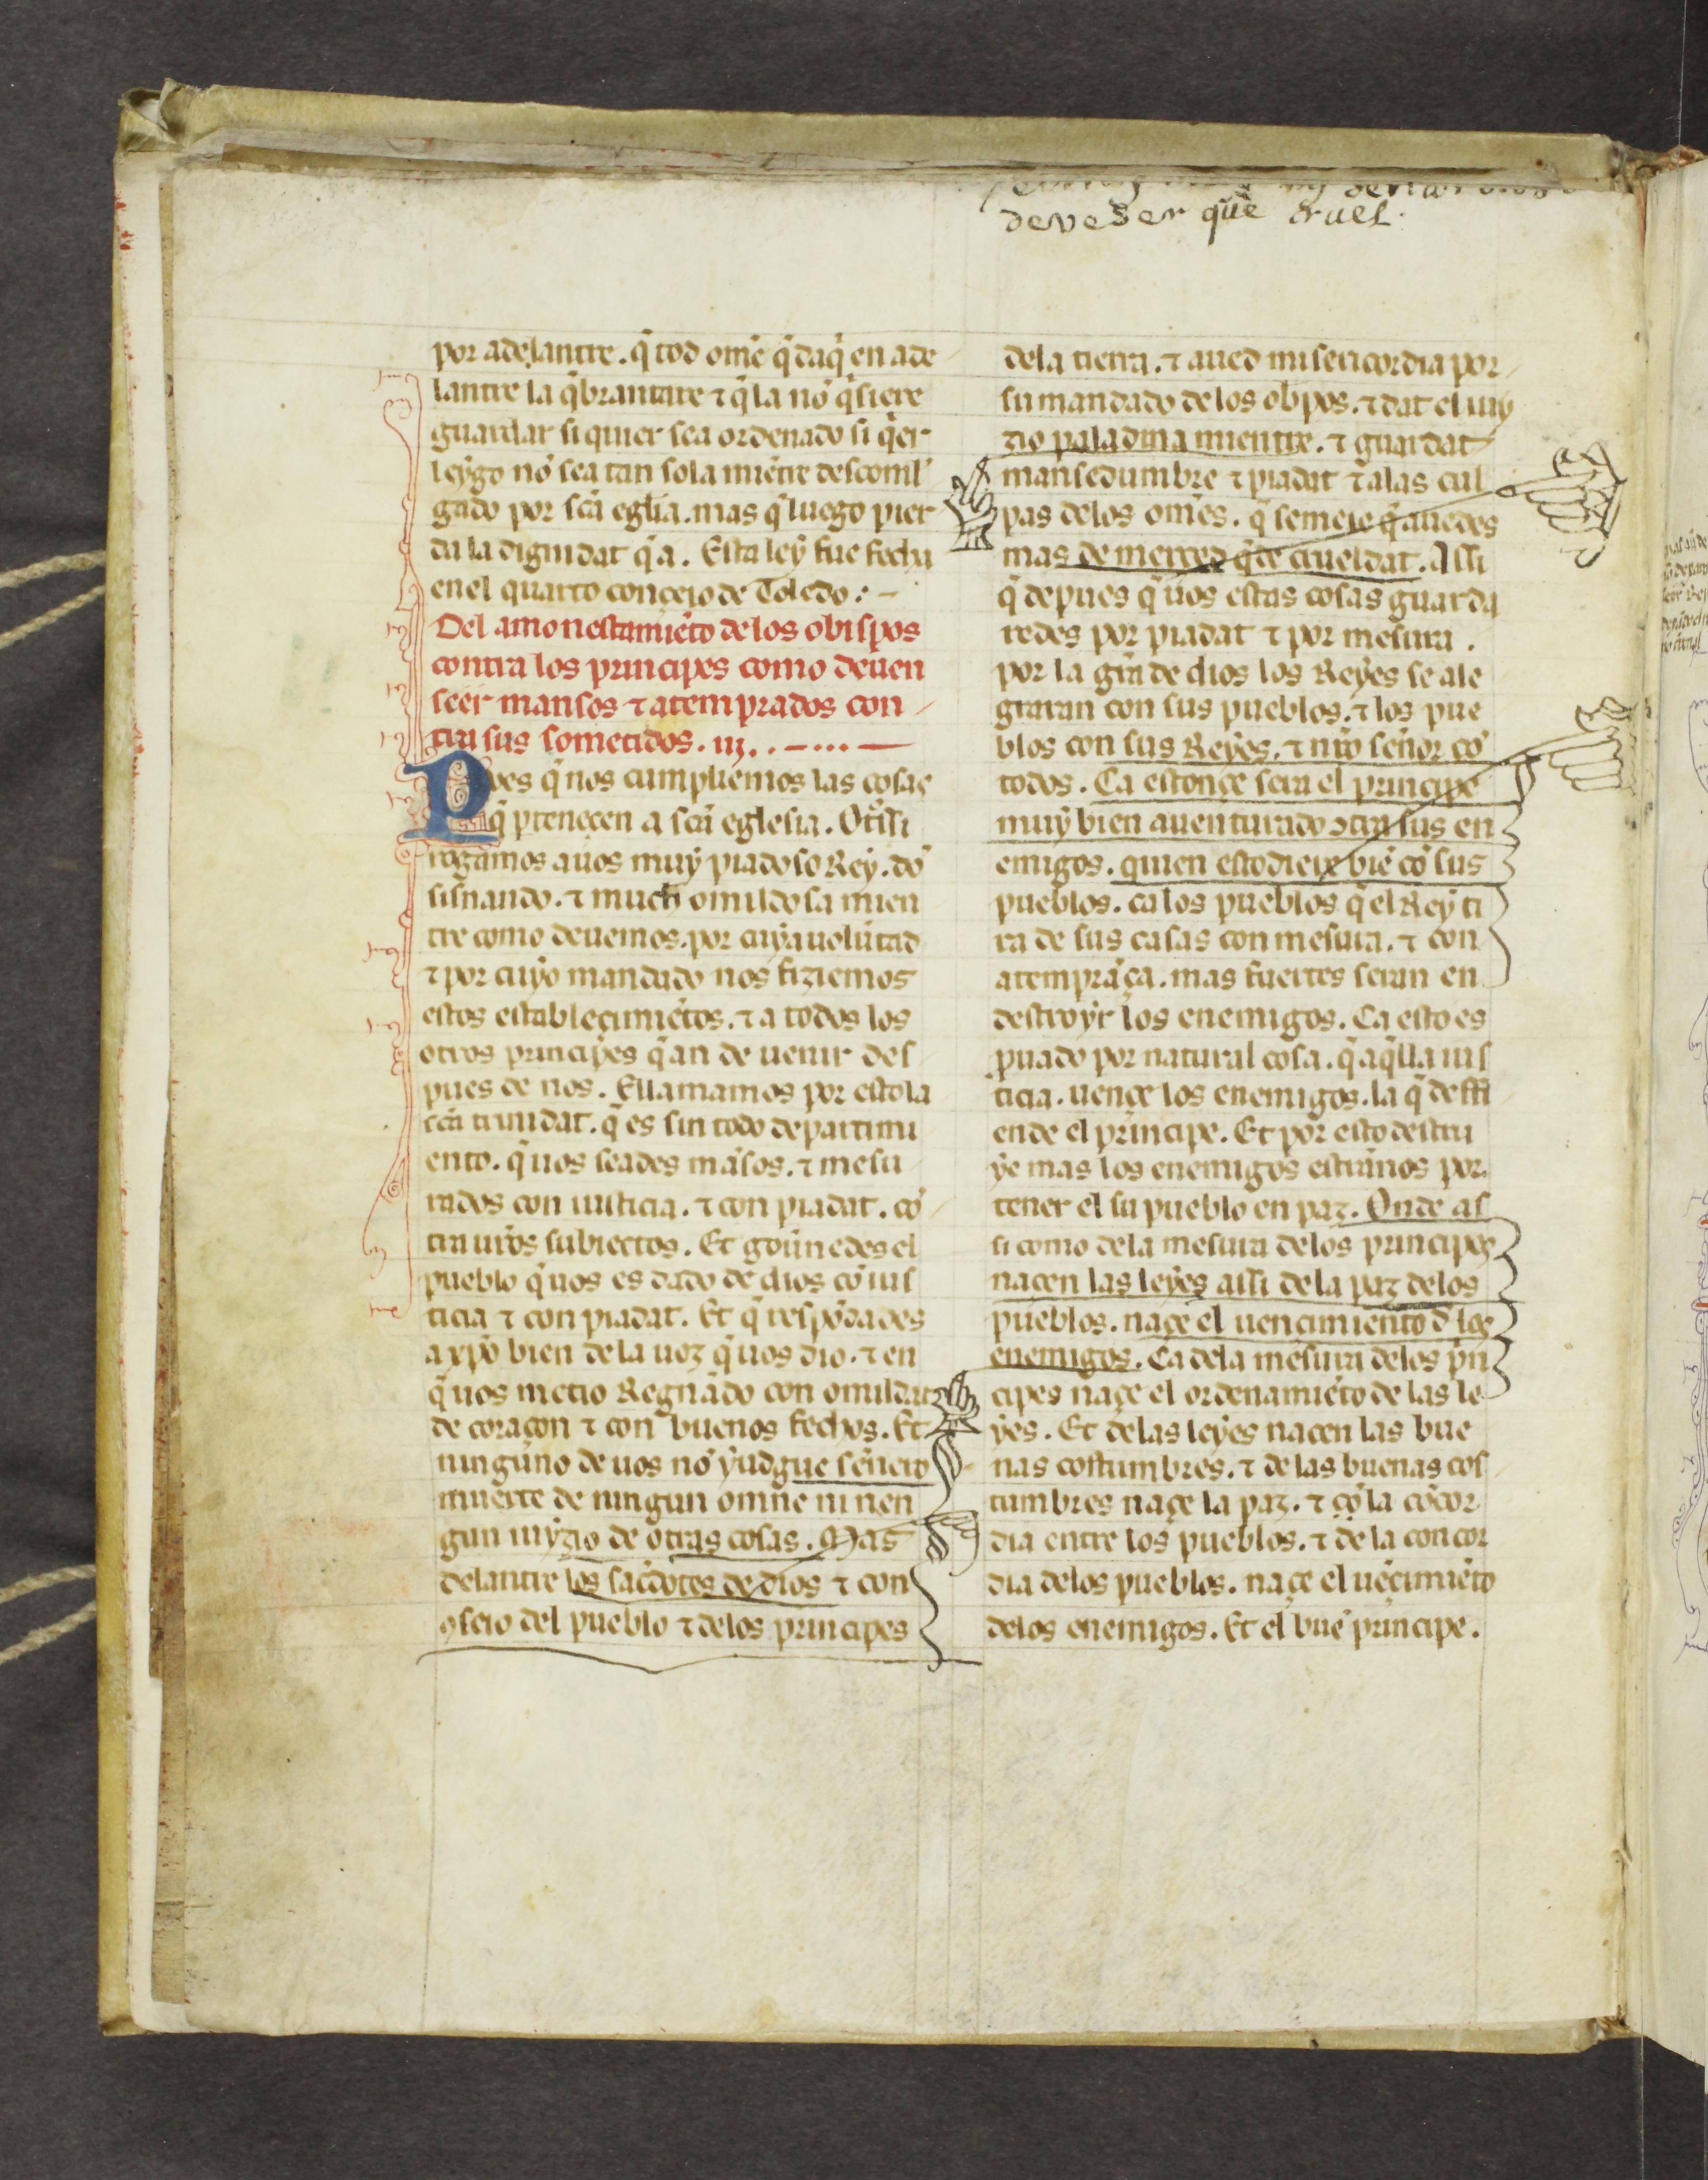 deve ser que cruel.
por adelantre. q̃ tod ome q̃ daq̃ en ade
lantre la q̃brantare ⁊ q̃ la nõ q̃siere
guardar si quier sea ordenado si q̃er
leygo nõ sea tan sola miẽtre descoml
gado por scã eglia. mas q̃ luego pier
da la dignidat q̃ a. Esta ley fue fecha
en el quarto conçeio de Toledo: –
Del amonestamiẽto de los obispos
contra los principes como deuen
seer mansos ⁊ atemprados con
tra sus sometidos. iij. . – ... —
Pves q̃ nos cumpliemos las cosas
q̃ ꝑtenecen a scã eglesia. Otrssi
rogamos a uos muy piadoso Rey. dõ
sisnando. ⁊ much omildosa mien
tre como deuemos. por cuya uolũtad
⁊ por cuyo mandado nos fiziemos
estos establecimiẽtos. ⁊ a todos los
otros principes q̃ an de uenir des
pues de nos. E llamamos por esto la
scã trinidat. q̃ es sin todo departimi
ento. q̃ uos seades mãsos. ⁊ mesu
rados con iusticia. ⁊ con piadat. cõ
tra ur̃os subiectos. Et gouñedes el
pueblo q̃ uos es dado de dios cõ ius
ticia ⁊ con piadat. Et q̃ respõdades
a xp̃o bien de la uoz q̃ uos dio. ⁊ en
q̃ uos metio Regnãdo con omildat
de coraçon ⁊ con buenos fechos. Et
ninguno de uos nõ yudgue señero
muerte de ningun omne ni nen
gun iuyzio de otras cosas. Mas
delantre los saćdotes de dios ⁊ con
ꝯseio del pueblo ⁊ de los principes
de la tierra. ⁊ aued misericordia por
su mandado de los obpos. ⁊ dat el iuy
zio paladina mientre. ⁊ guardat
mansedumbre ⁊ piadat ⁊ a las cul
pas de los omẽs. q̃ semeie q̃ auedes
mas de merced q̃ de crueldat. Assi
q̃ depues q̃ uos estas cosas guarda
redes por piadat ⁊ por mesura.
por la grã de dios los Reyes se ale
graran con sus pueblos. ⁊ los pue
blos con sus Reyes. ⁊ nr̃o señor cõ
todos. Ca estonçe sera el principe
muy bien auenturado ꝯtra sus en
emigos. quien estodiere biẽ cõ sus
pueblos. ca los pueblos q̃ el Rey ti
ra de sus casas con mesura. ⁊ con
atemprãça. mas fuertes seran en
destroyr los enemigos. Ca esto es
puado por natural cosa. q̃ aq̃lla ius
ticia. uençe los enemigos. la q̃ deffi
ende el principe. Et por esto destru
ye mas los enemigos estrãnos por
tener el su pueblo en paz. Onde as
si como de la mesura de los principes
nacen las leyes assi de la paz de los
pueblos. naçe el uencimiento d̃ los
enemigos. Ca de la mesura de los pñ
cipes naçe el ordenamiẽto de las le
yes. Et de las leyes nacen las bue
nas costumbres. ⁊ de las buenas cos
tumbres naçe la paz. ⁊ cõ la cõcor
dia entre los pueblos. ⁊ de la concor
dia de los pueblos. naçe el uẽçimiẽto
de los enemigos. Et el buẽ principe.